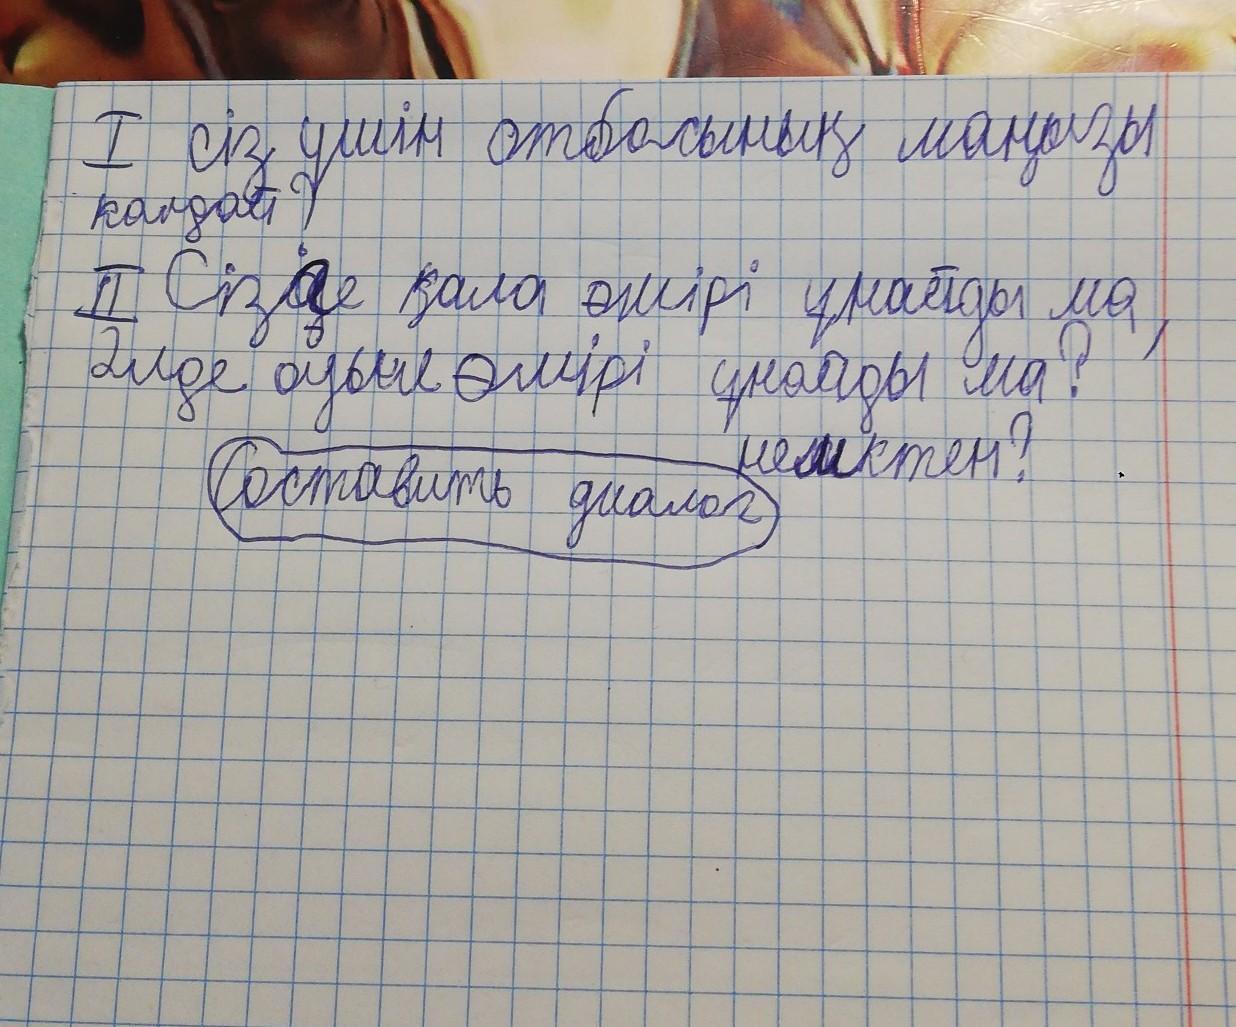 I сіз үшін отбасының маңызы
қандай?
II Сізге қала өмірі ұнайды ма,
әлде ауыл өмірі ұнайды ма?
неліктен?
Составить диалог